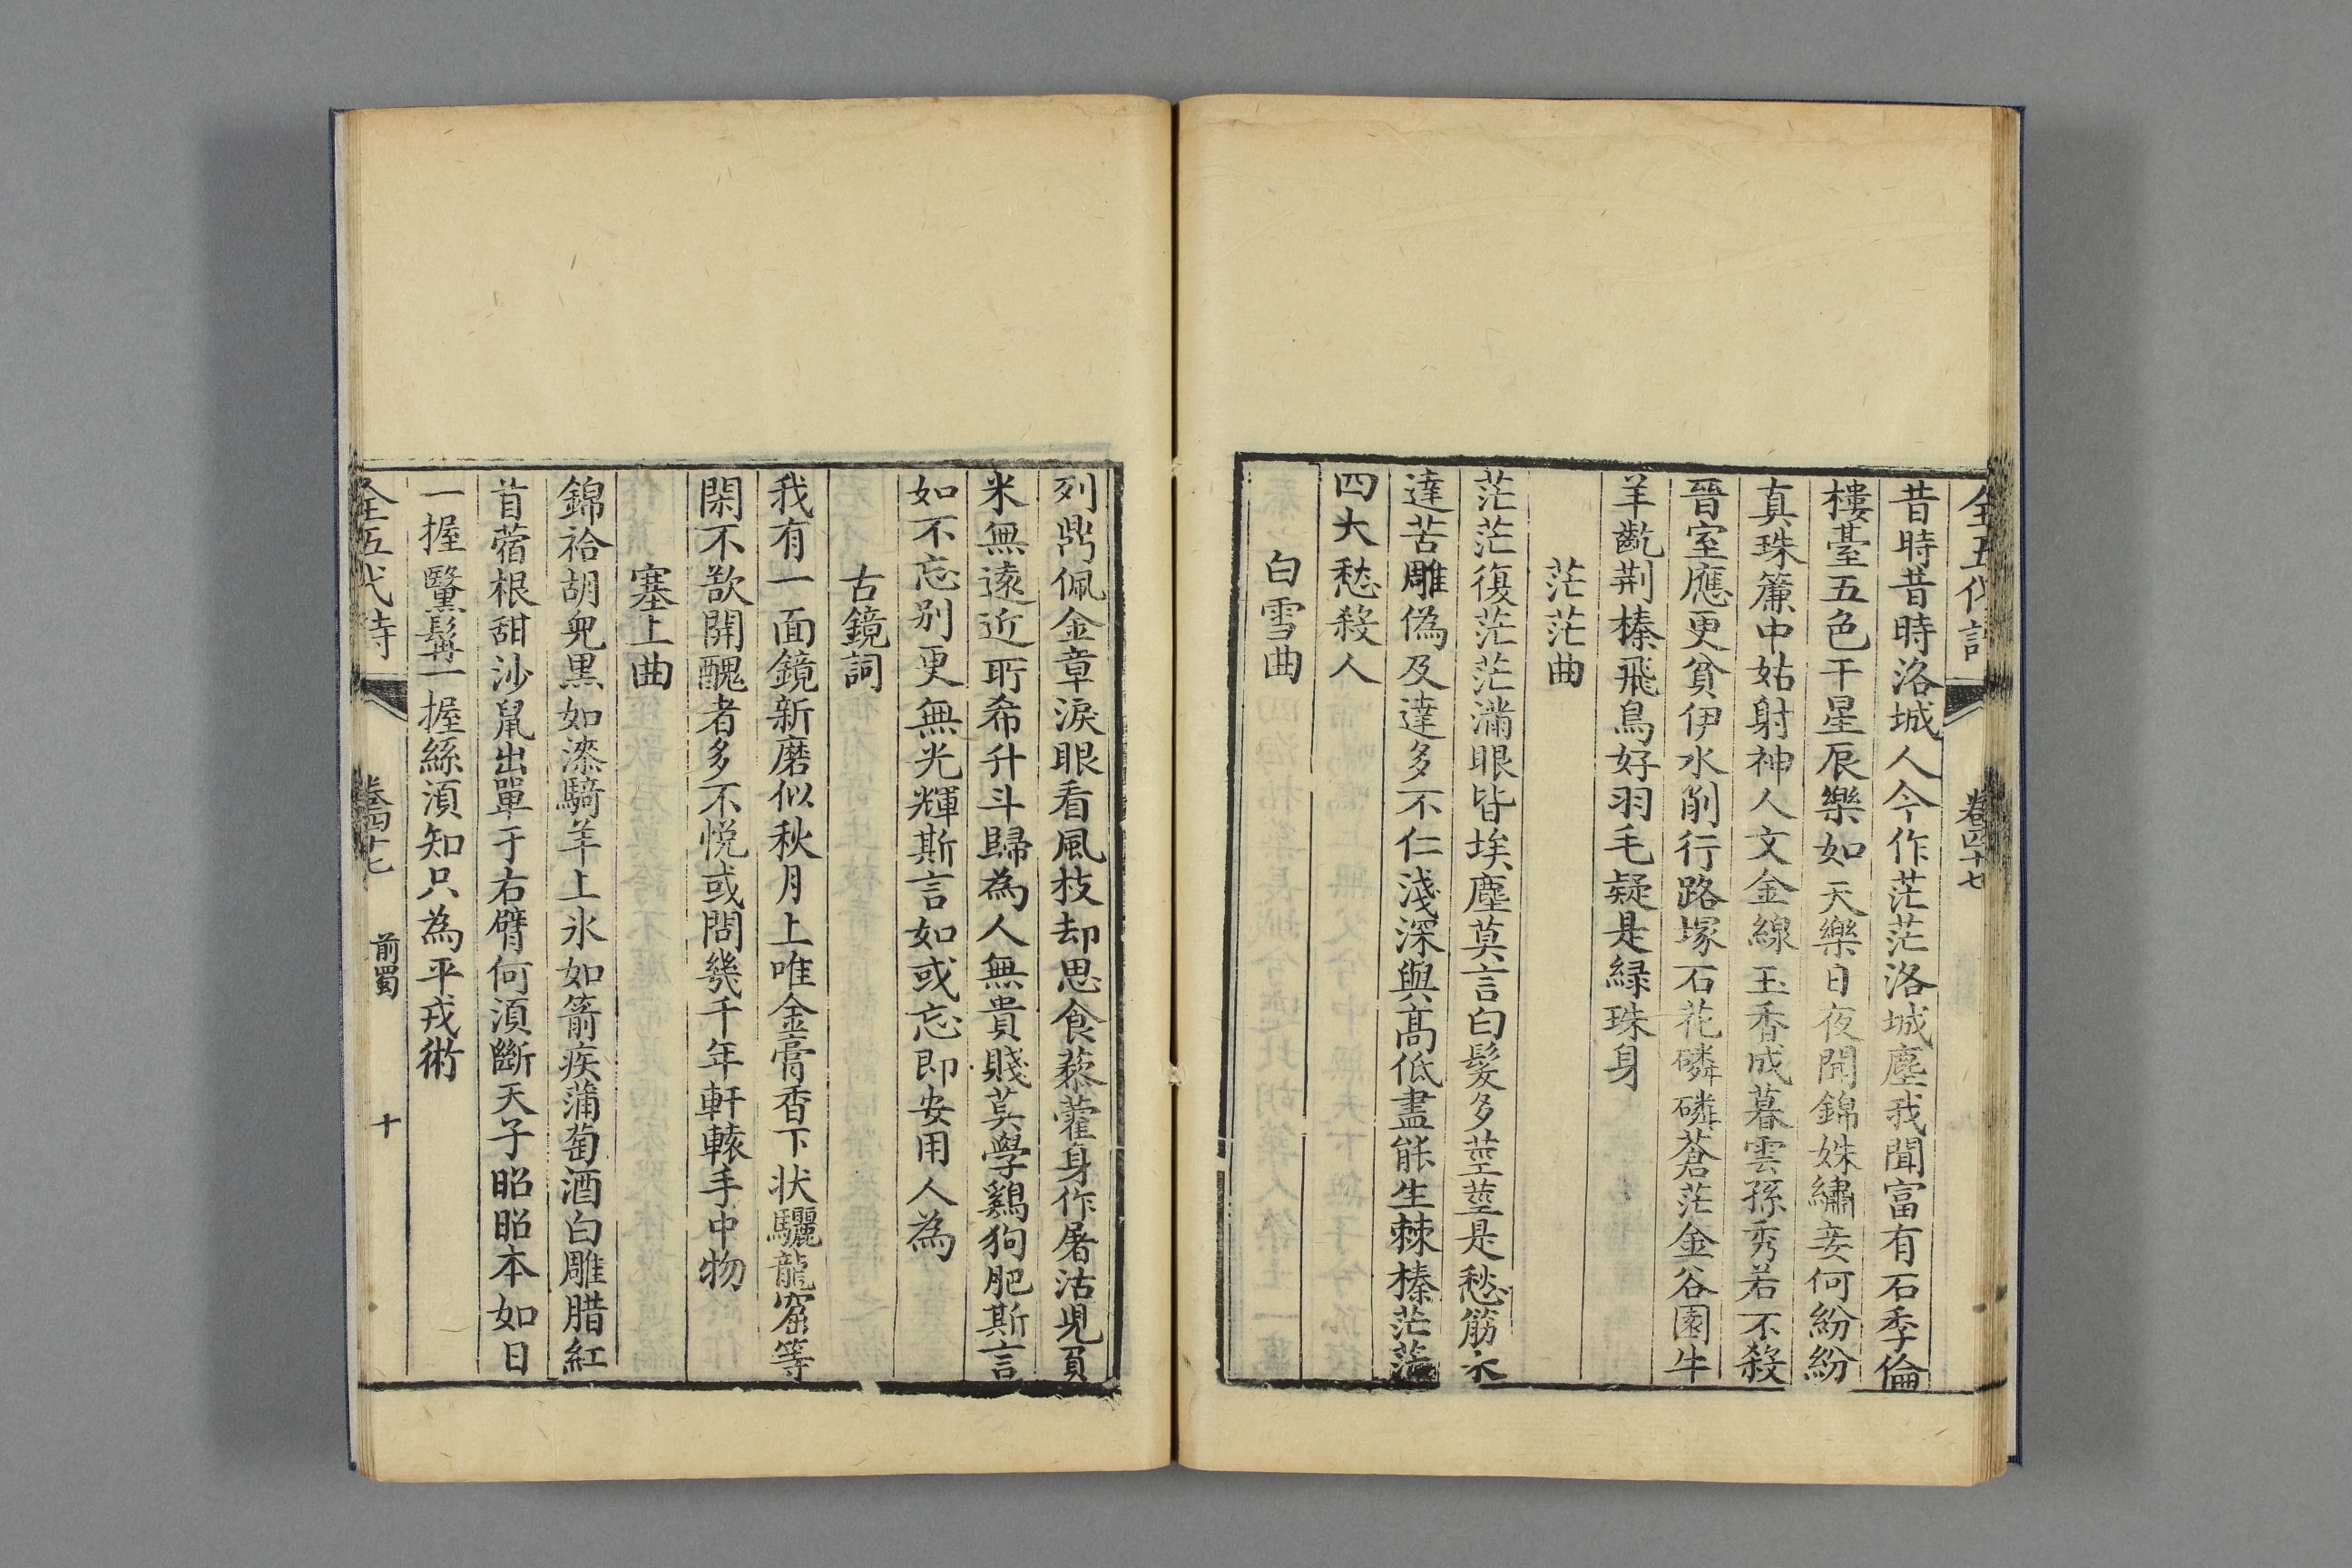 全五代詩 卷四十七
昔時昔時洛城人今作茫茫洛城塵我聞富有石季倫
樓臺五色干星辰樂如天樂日夜聞錦姝繡妾何紛紛
真珠簾中姑射神人文金線玉香成暮雲孫秀若不殺
晉室應更貧伊水削行路塚石花磷磷蒼茫金谷園牛
羊齕荆榛飛鳥好羽毛疑是緑珠身
茫茫曲
茫茫復茫茫滿眼皆埃塵莫言白髮多莖莖是愁筋未
達苦雕偽及達多不仁淺深與髙低盡能生棘榛茫茫
四大愁殺人
白雪曲
列鼎佩金章淚眼看風枝却思食藜藿身作屠沽兒負
米無遠近所希升斗歸為人無貴賤莫學鷄狗肥斯言
如不忘别更無光輝斯言如或忘即安用人為
古鏡詞
我有一面鏡新磨似秋月上唯金膏香下状驪龍窟等
閑不歘開醜者多不悦或問幾千年軒轅手中物
塞上曲
錦袷胡兒黒如漆騎羊上氷如箭疾蒲萄酒白雕腊紅
苜蓿根甜沙鼠出單于右臂何須斷天子昭昭本如日
一握黳髯一握絲須知只為平戎術
全五代詩 卷四十七 前蜀 十